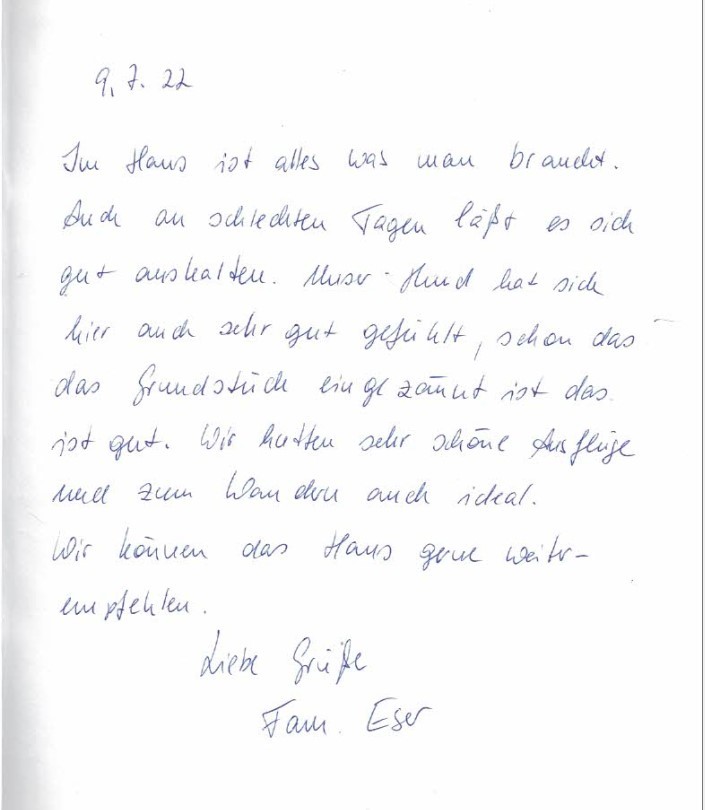 9.7.22
Im Haus ist alles was man braucht.
Auch an schlechten Tagen läßt es sich
gut aushalten. Unser Hund hat sich
hier auch sehr gut gefühlt, schon das
das Grundstück eingezäunt ist das
ist gut. Wir hatten sehr schöne Ausflüge
und zum Wandern auch ideal.
Wir können das Haus gerne weiter-
empfehlen.
Liebe Grüße
Fam. Eser